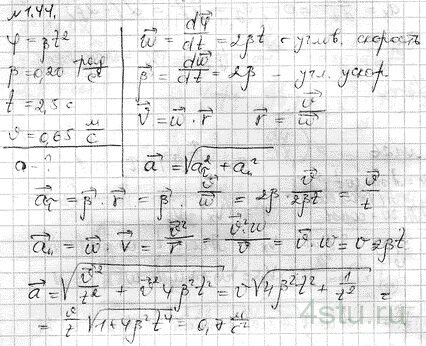 №1.44.
φ = βt²
β = 0,20 рад/с²
t = 2,5 с
ϑ = 0,65 м/с
a - ?
w⃗ = dφ⃗/dt = 2βt - углов. скорость
β⃗ = dw⃗/dt = 2β - угл. ускор.
v⃗ = w⃗ · r⃗ r⃗ = ϑ⃗/w⃗
a⃗ = √(a_τ² + a_n²)
a⃗_τ = β⃗ · r⃗ = β⃗ · ϑ⃗/w⃗ = 2β · ϑ⃗/2βt = ϑ⃗/t
a⃗_n = w⃗ · v⃗ = ϑ⃗²/r⃗ = ϑ⃗²·w/ϑ = ϑ⃗ · w = v 2βt
a⃗ = √(ϑ⃗²/t² + ϑ⃗² 4β²t²) = v√(4β²t² + 1/t²) =
= ϑ/t √(1+4β²t⁴) = 0,7 м/с²
4stu.ru